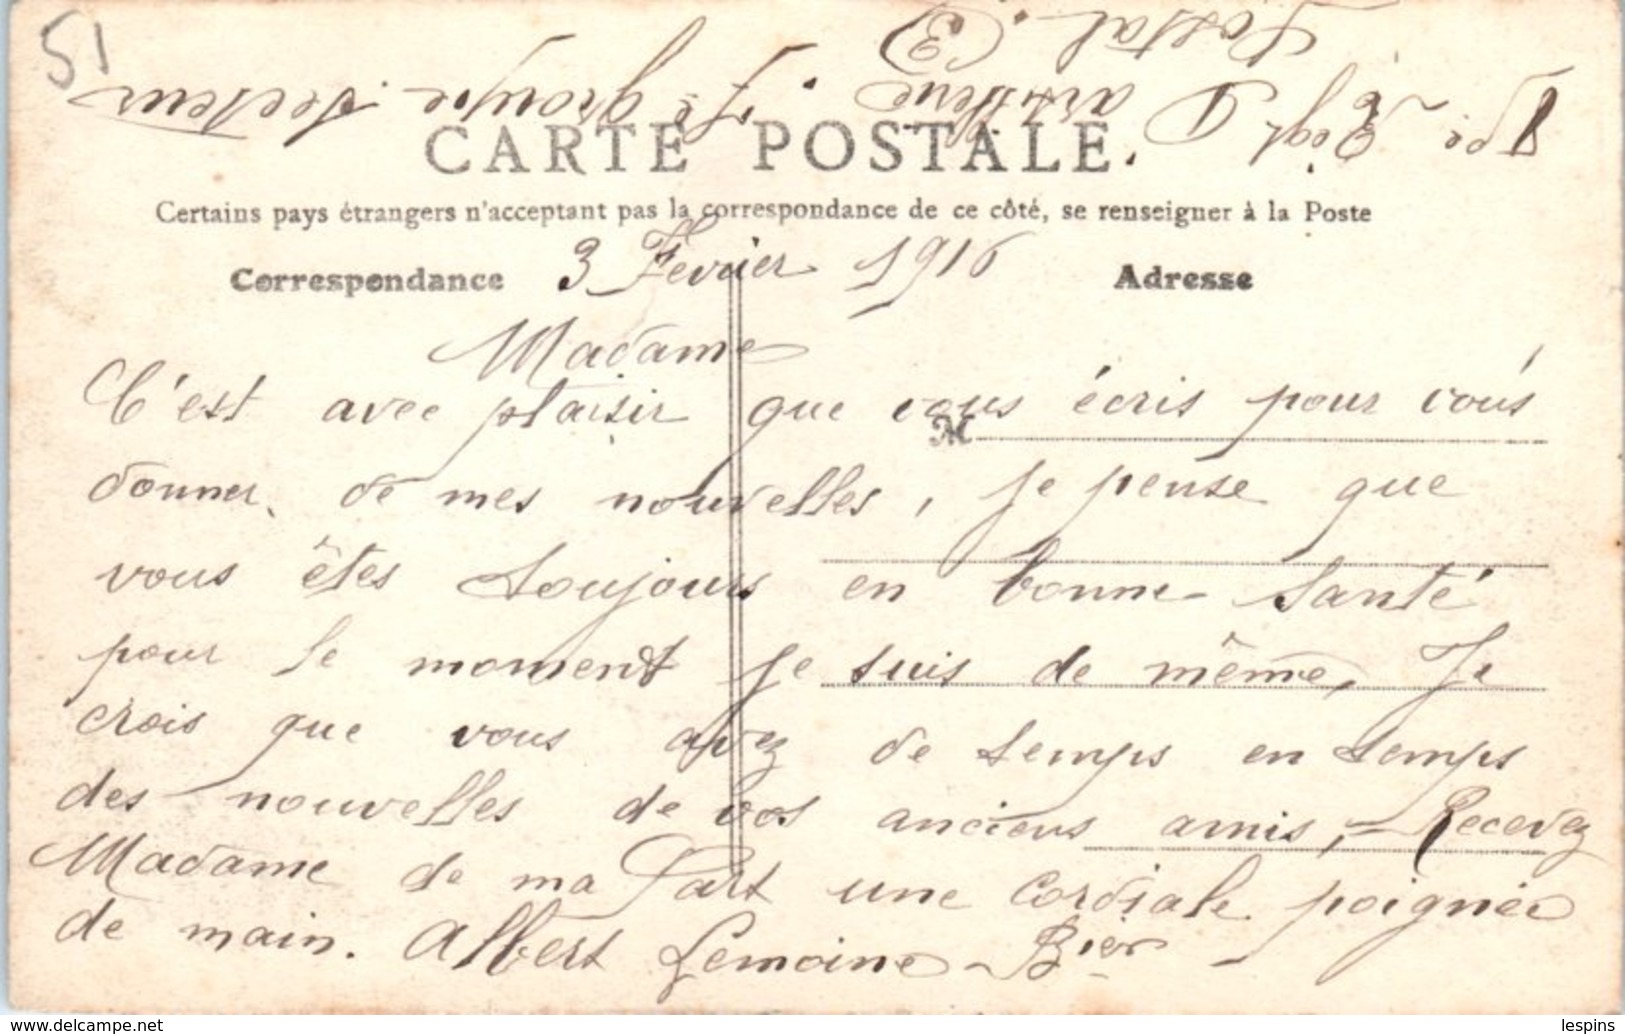 51
CARTE POSTALE
Certains pays étrangers n'acceptant pas la correspondance de ce côté, se renseigner à la Poste
Correspondance
Adresse
3 Fevrier 1916
Madame
C'est avec plaisir que vous écris pour vous
donner de mes nouvelles, je pense que
vous êtes toujours en bonne santé
pour le moment je suis de même, Je
crois que vous avez de temps en temps
des nouvelles de vos anciens amis, Recevez
Madame de ma Part une cordiale poignée
de main. Albert Lemoine Bier
M
Régt D'artillerie. groupe secteur
Postal (3)
delcampe.net
lespins